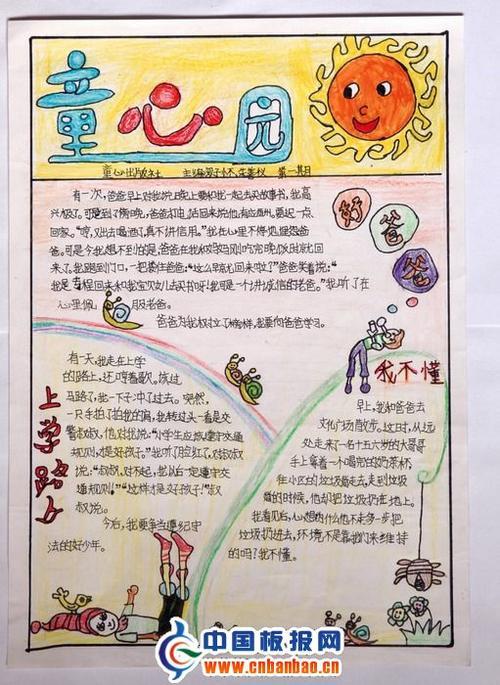 童心园
童心出版社 主编 第一期
好爸爸
有一次，爸爸早上对我说上晚上要和我一起去买故事书，我高
兴极了。可是到了傍晚，爸爸打电话回来说他有应酬，要迟一点
回家。“哼，又出去喝酒了，真不讲信用。”我在心里不停埋怨爸
爸。可是令我想不到的是，爸爸在我和妈妈刚吃完晚饭时就回
来了。我跑到门口，一把搂住爸爸：“这么早就回来啦？”爸爸笑着说：“
我是专程回来和我宝贝女儿去买书呀！我可是一个讲诚信的老爸。”我听了在
心里佩服老爸。
爸爸为我树立了榜样，我要向爸爸学习。
上学路上
有一天，我走在上学
的路上，还哼着歌。
马路了，我一下子冲了过去。突然，
一只手拍了拍我的肩，我转过头一看是交
警叔叔，他对我说：“小学生应该遵守交通
规则，才是好孩子。”我听了脸红了，对叔叔
说：“叔叔，对不起，我从后一定遵守交
通规则！”“这样才是好孩子！”叔
叔说。
今后，我要争当遵纪守
法的好少年。
我不懂
早上，我和爸爸去
文化广场散步。这时，从远
处走来了一名十五六岁的大哥哥
手上拿着一个喝完的奶茶杯
在小区的垃圾桶去，走到垃圾
桶的时候，他却把垃圾扔在地上。
我看见后，心想为什么他不走多一步把
垃圾扔进去，环境不是靠我们来维持
的吗？我不懂。
中国板报网
www.cnbanbao.cn